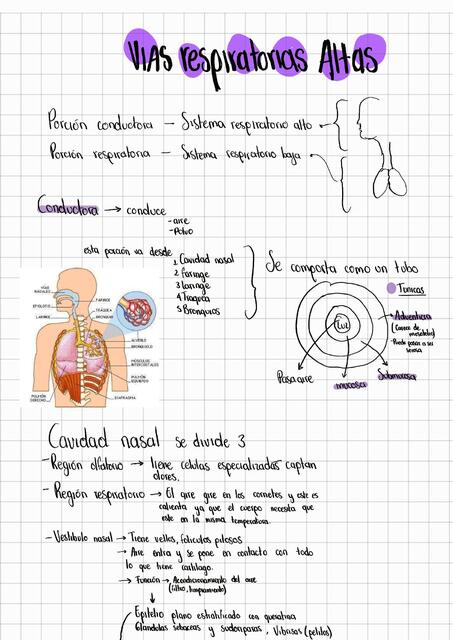 VIAS respiratorias Altas
Porción conductora — Sistema respiratorio alto
Porción respiratoria — Sistema respiratorio bajo
Conductora → conduce
- aire
- Polvo
esta porción va desde
1 Cavidad nasal
2 Faringe
3 laringe
4 Traquea
5 Bronquios
Se comporta como un tubo
Tunicas
Luz
Adventicia
(Carece de mesotelio)
- Puede pasar a ser serosa
Pasa aire
mucosa
Submucosa
VÍAS NASALES
FARINGE
EPIGLOTIS
LARINGE
TRÁQUEA
BRONQUIO
ALVÉOLO
BRONQUIOLO
MÚSCULOS INTERCOSTALES
PULMÓN IZQUIERDO
PULMÓN DERECHO
DIAFRAGMA
Cavidad nasal se divide 3
- Región olfatorio → tiene celulas especializadas captan
olores.
- Región respiratorio → El aire gire en los cornetes y este es
calienta ya que el cuerpo necesita que
este en la misma temperatura.
- Vestibulo nasal → Tiene vellos, foliculos pilosos
→ Aire entra y se pone en contacto con todo
lo que tiene cartilago.
→ Función → Acondicionamiento del aire
(filtro, humeamiento)
Epitelio plano estratificado con queratina
Glandulas sebaceas y sudoriparas, Vibrisas (pelitos)